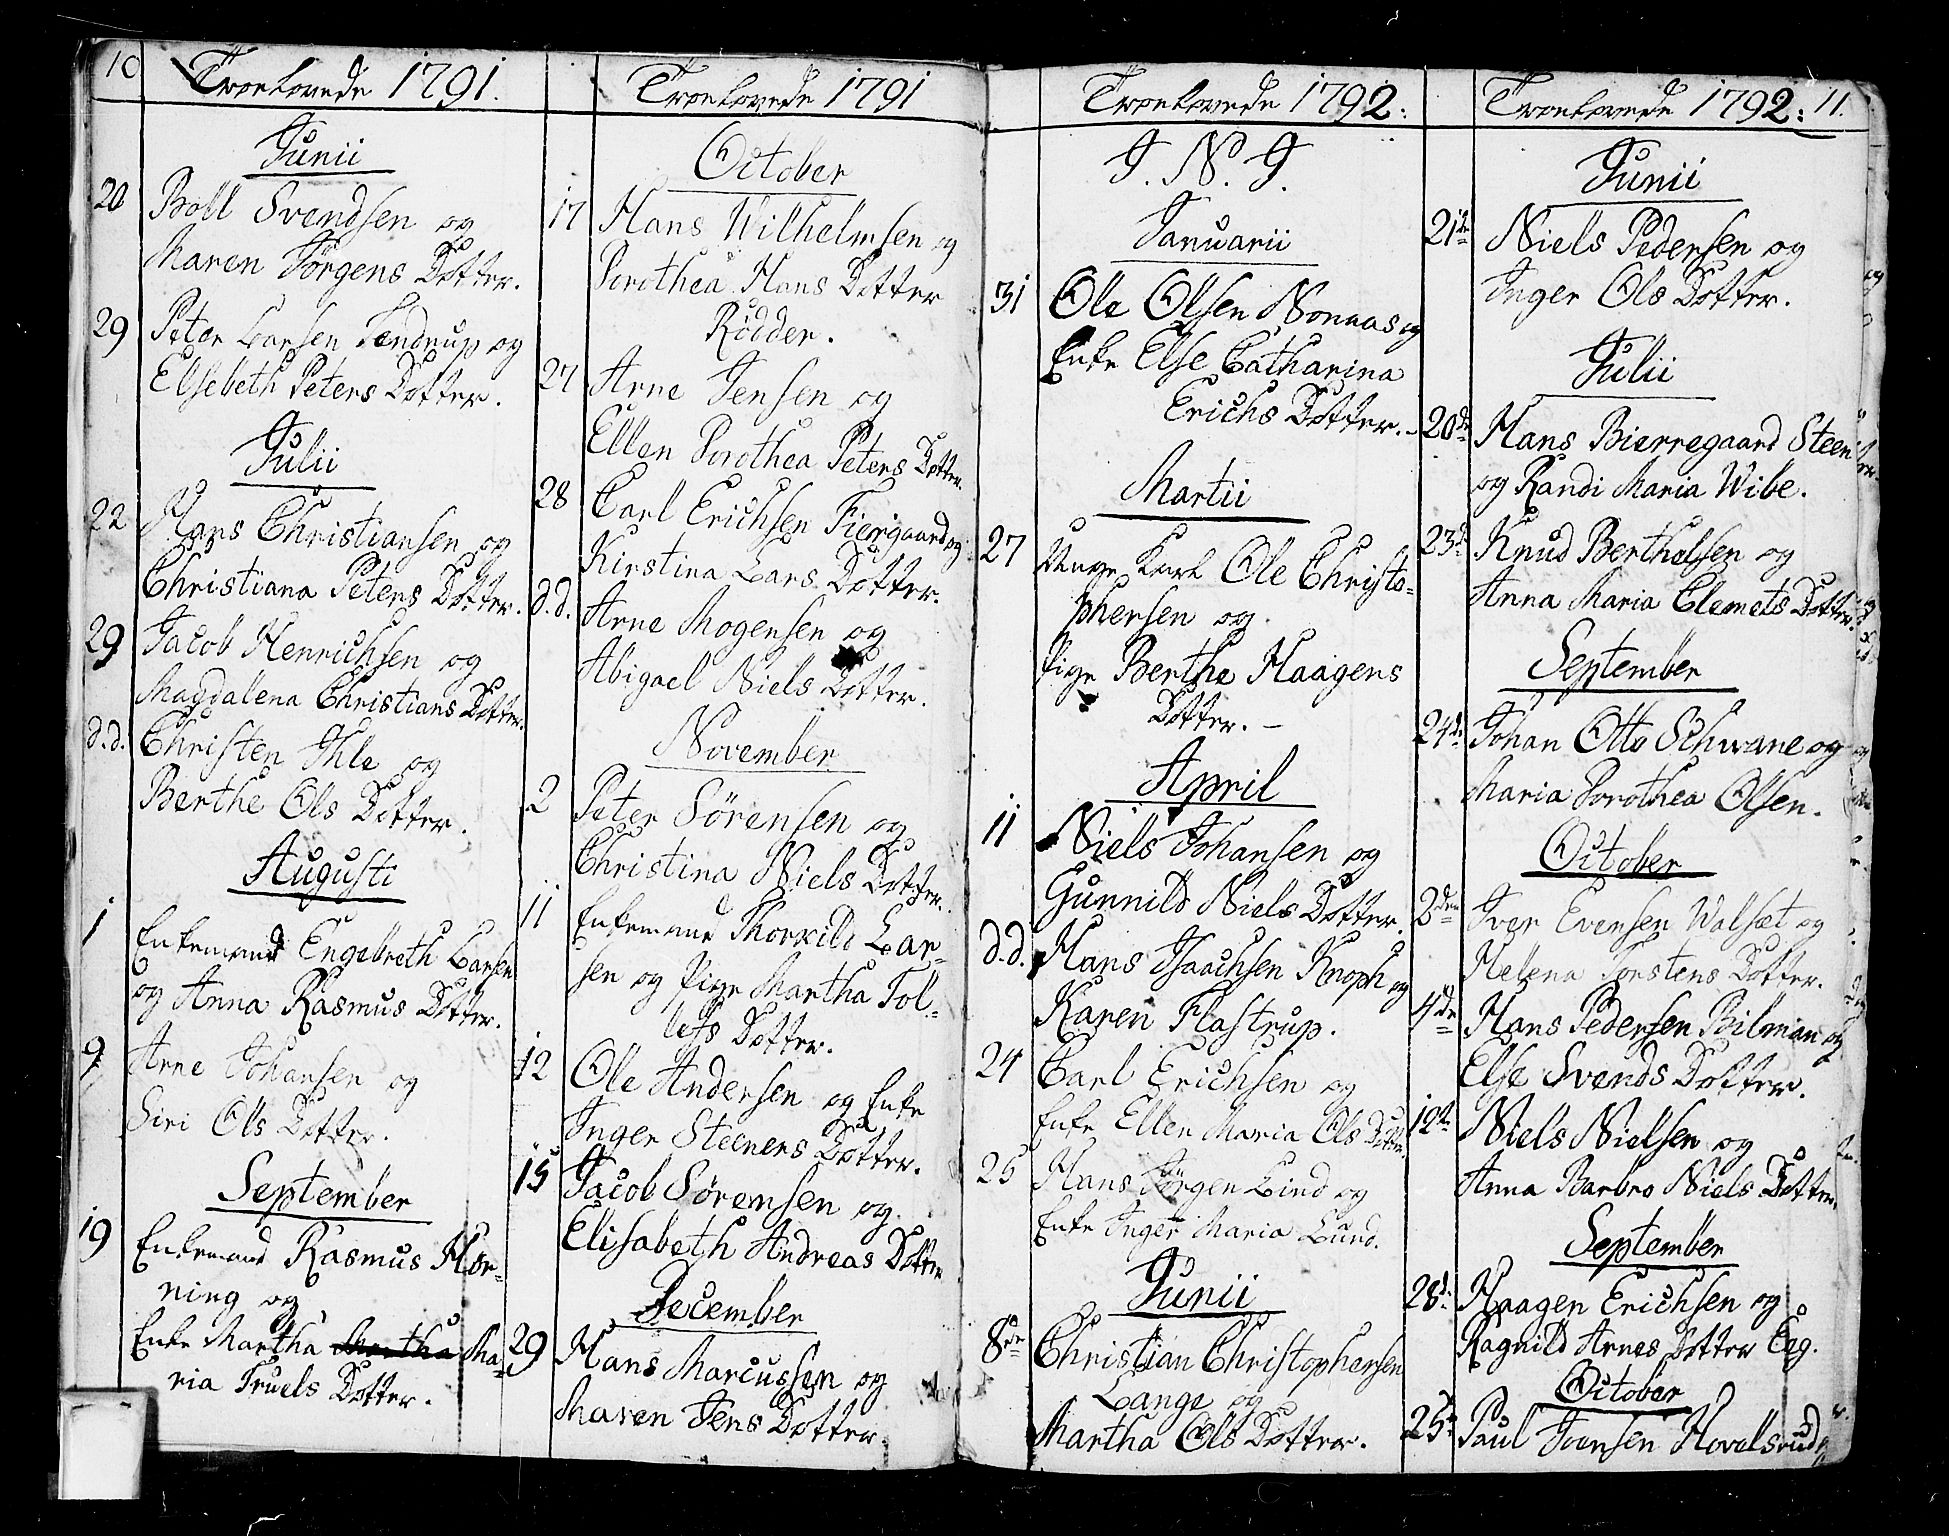 10
Troelovede 1791.
Junii
20 Boll Svendsen og
Maren Jörgens Dotter.
29 Peter Larsen Tendrup og
Elsebeth Peters Dotter.
Julii
22 Hans Christiansen og
Christiana Peters Dotter.
29 Jacob Henrichsen og
Magdalena Christians Dotter.
d.d. Christen Ihle og
Berthe Ols Dotter.
Augusti
1 Enkemand Engebreth Larsen
og Anna Rasmus Dotter.
9 Arne Johansen og
Siri Ols Dotter.
September
19 Enkemand Rasmus Hor-
ning og
Enke Martha Martha Ma-
ria Truels Dotter.
Troelovede 1791
October
17 Hans Wilhelmsen og
Dorothea Hans Dotter
Rödder.
27 Arne Jensen og
Ellen Dorothea Peters Dotter.
28 Carl Erichsen Fiergaard og
Kirstina Lars Dotter.
d.d. Arne Mogensen og
Abigael Niels Dotter.
November
2 Peter Sörensen og
Christina Niels Dotter.
11 Enkemand Thorkild Lar-
sen og Pige Martha Tol-
lefs Dotter.
12 Ole Andersen og Enke
Inger Steeners Dotter.
15 Jacob Sörensen og
Elisabeth Andreas Dotter
December
29 Hans Marcussen og
Maren Jens Dotter
Troelovede 1792.
J. N. J.
Januarii
31 Ole Olsen Nonaas og
Enke Else Catharina
Erichs Dotter.
Martii
27 Unge Karl Ole Christo-
phersen og
Pige Berthe Haagens
Dotter. –
April
11 Niels Johansen og
Gunnild Niels Dotter.
d.d. Hans Isaachsen Knoph og
Karen Flastrup.
24 Carl Erichsen og
Enke Ellen Maria Ols Dotter.
25 Hans Jörgen Lind og
Enke Inger Maria Lund.
Junii
8de Christian Christophersen
Lange og
Martha Ols Dotter.
Troelovede 1792. 11.
Junii
21de Niels Pedersen og
Inger Ols Dotter.
Julii
20de Hans Bierregaard Steen
og Randi Maria Wibe.
23d Knud Berthelsen og
Anna Maria Clemets Dotter.
September
24de Johan Otto Schwane og
Maria Dorothea Olsen.
October
Iver Evensen Walsæt og
Helena Torstens Dotter.
4de Hans Pedersen Bilman og
Else Svends Dotter.
12te Niels Nielsen og
Anna Barbro Niels Dotter.
September
28d Haagen Erichsen og
Ragnild Arnes Dotter Eeg.
October
25 Paul Joensen Hovelsrud